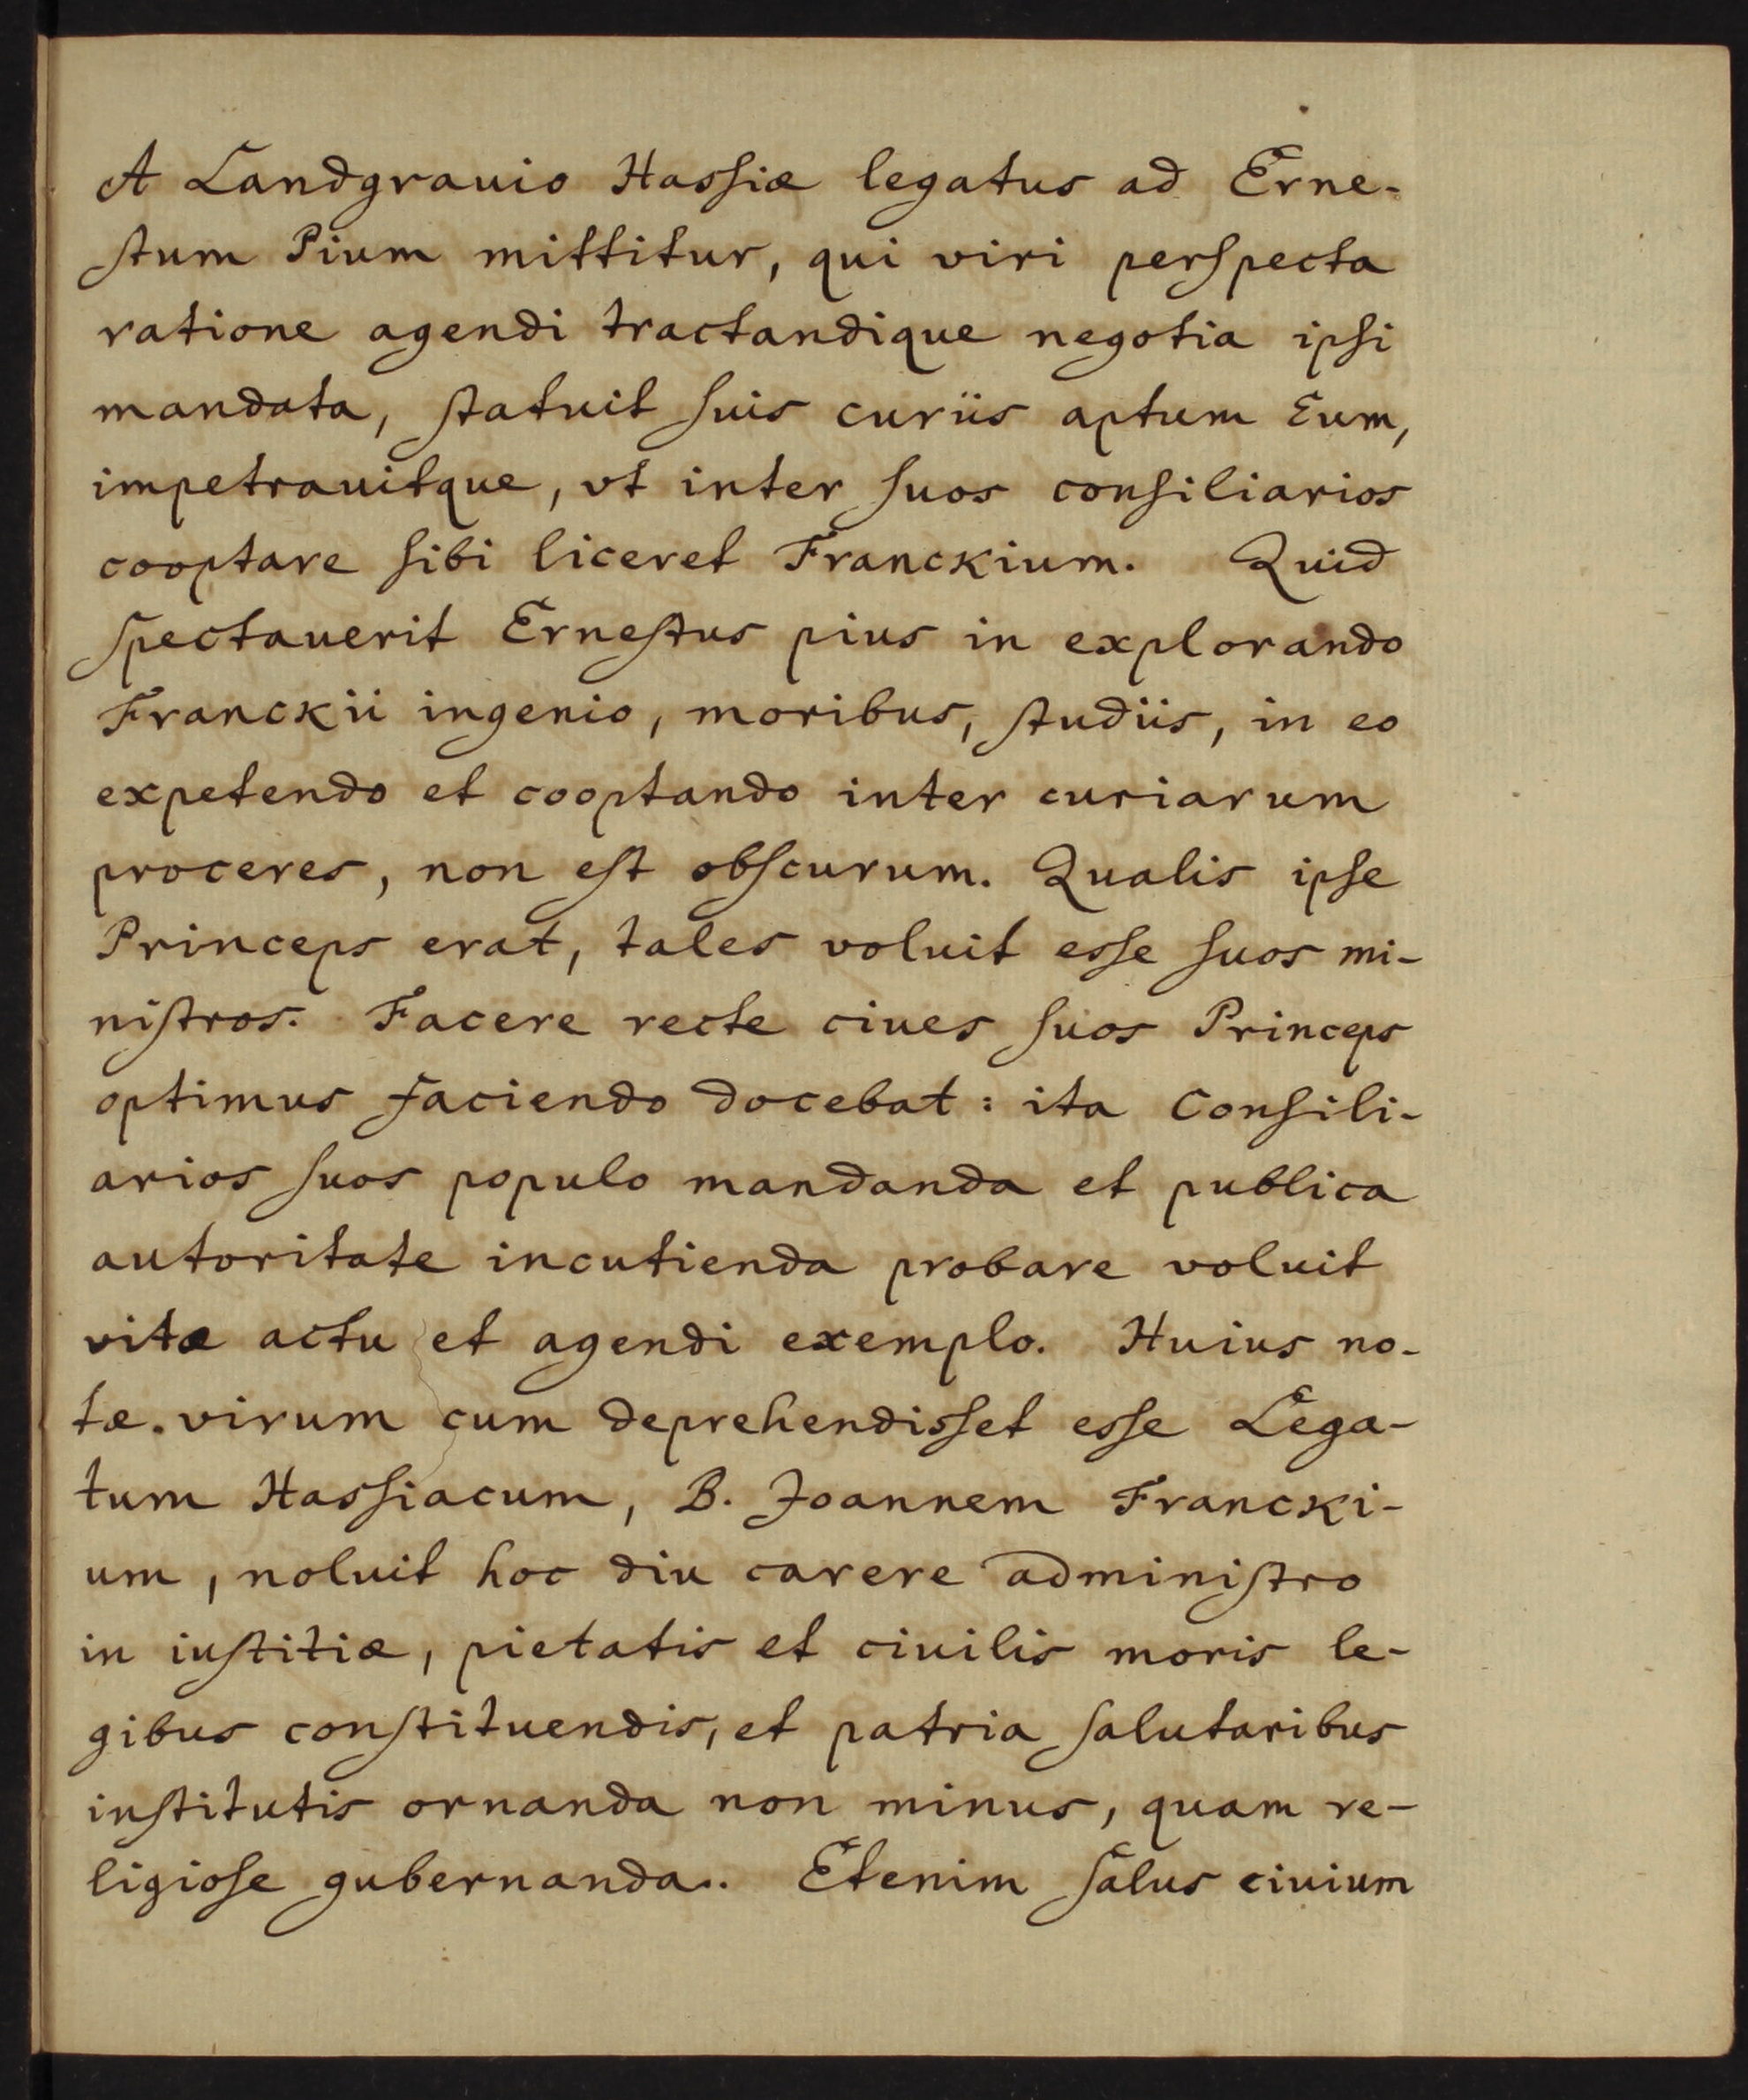 A Landgrauio Hasſiæ legatus ad Erne-
ſtum Pium mittitur, qui viri perſpecta
ratione agendi tractandique negotia ipſi
mandata, ſtatuit ſuis curiis aptum Eum,
impetrauitque, vt inter ſuos conſiliarios
cooptare ſibi liceret Franckium. Quid
ſpectauerit Erneſtus pius in explorando
Franckii ingenio, moribus, ſtudiis, in eo
expetendo et cooptando inter curiarum
proceres, non eſt obſcurum. Qualis ipſe
Princeps erat, tales voluit esſe ſuos mi-
niſtros. Facere recte ciues ſuos Princeps
optimus faciendo docebat: ita Conſili-
arios ſuos populo mandanda et publica
autoritate incutienda probare voluit
vitæ actu et agendi exemplo. Huius no-
tæ. virum cum deprehendisſet esſe Lega-
tum Hasſiacum, B. Joannem Francki-
um, noluit hoc diu carere adminiſtro
in iuſtitiæ, pietatis et ciuilis moris le-
gibus conſtituendis, et patria ſalutaribus
inſtitutis ornanda non minus, quam re-
ligioſe gubernanda.. Etenim ſalus ciuium